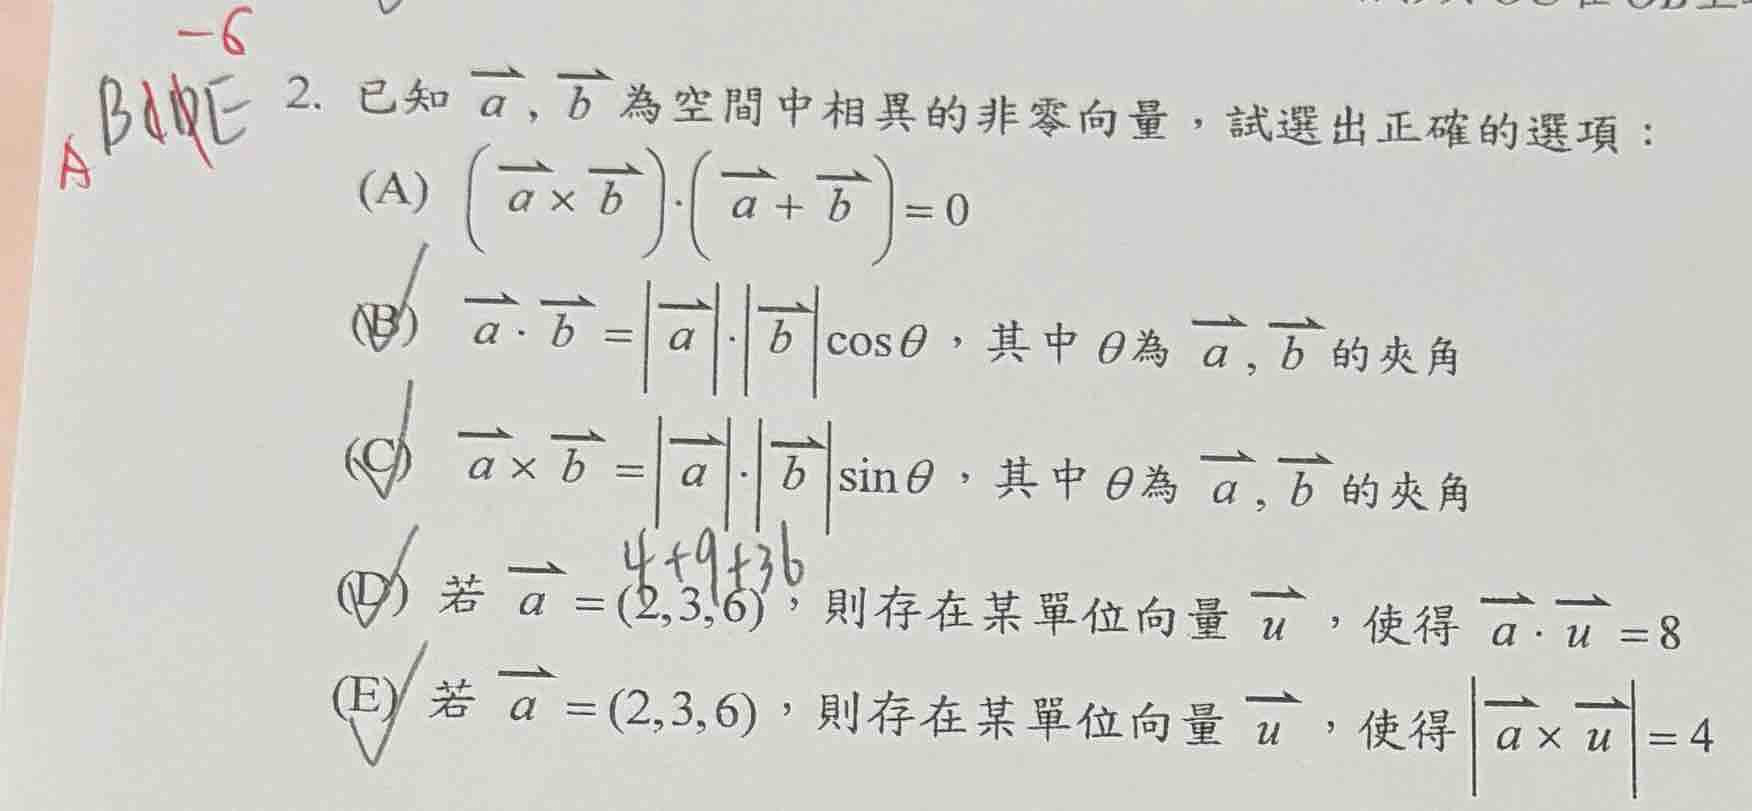 -6
BCDE
A
2. 已知 a, b 為空間中相異的非零向量，試選出正確的選項：
(A) (a × b)·(a + b) = 0
(B) a · b = |a|·|b| cosθ，其中 θ為 a, b 的夾角
(C) a × b = |a|·|b| sinθ，其中 θ為 a, b 的夾角
4+9+36
(D) 若 a = (2,3,6)，則存在某單位向量 u，使得 a · u = 8
(E) 若 a = (2,3,6)，則存在某單位向量 u，使得 |a × u| = 4